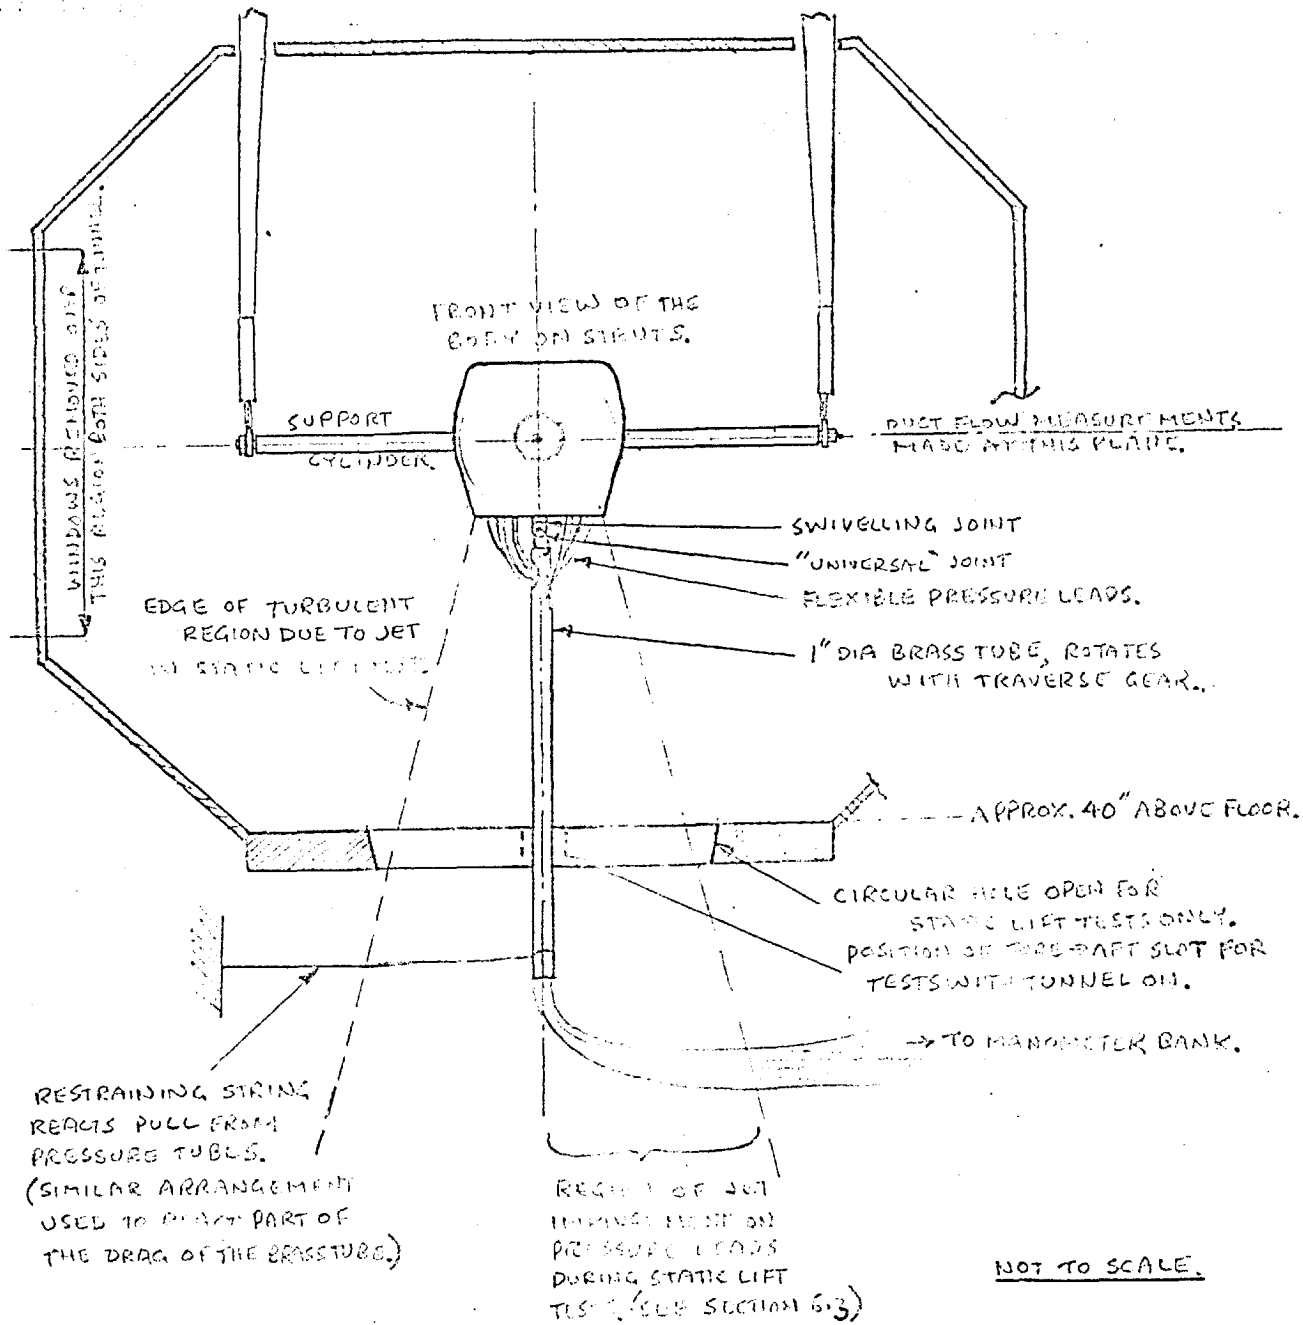 FRONT VIEW OF THE
BODY ON STRUTS.
WINDOWS REMOVED OVER
THIS REGION BOTH SIDES OF TUNNEL.
SUPPORT
CYLINDER.
DUCT FLOW MEASUREMENTS
MADE AT THIS PLANE.
SWIVELLING JOINT
"UNIVERSAL" JOINT
FLEXIBLE PRESSURE LEADS.
EDGE OF TURBULENT
REGION DUE TO JET
IN STATIC LIFT TEST.
1" DIA BRASS TUBE, ROTATES
WITH TRAVERSE GEAR.
APPROX. 40" ABOVE FLOOR.
CIRCULAR HOLE OPEN FOR
STATIC LIFT TESTS ONLY.
POSITION OF FORE-&-AFT SLOT FOR
TESTS WITH TUNNEL ON.
→ TO MANOMETER BANK.
RESTRAINING STRING
REACTS PULL FROM
PRESSURE TUBES.
(SIMILAR ARRANGEMENT
USED TO REACT PART OF
THE DRAG OF THE BRASS TUBE.)
REGION OF JET
IMPINGEMENT ON
PRESSURE LEADS
DURING STATIC LIFT
TEST. (SEE SECTION 6.3)
NOT TO SCALE.